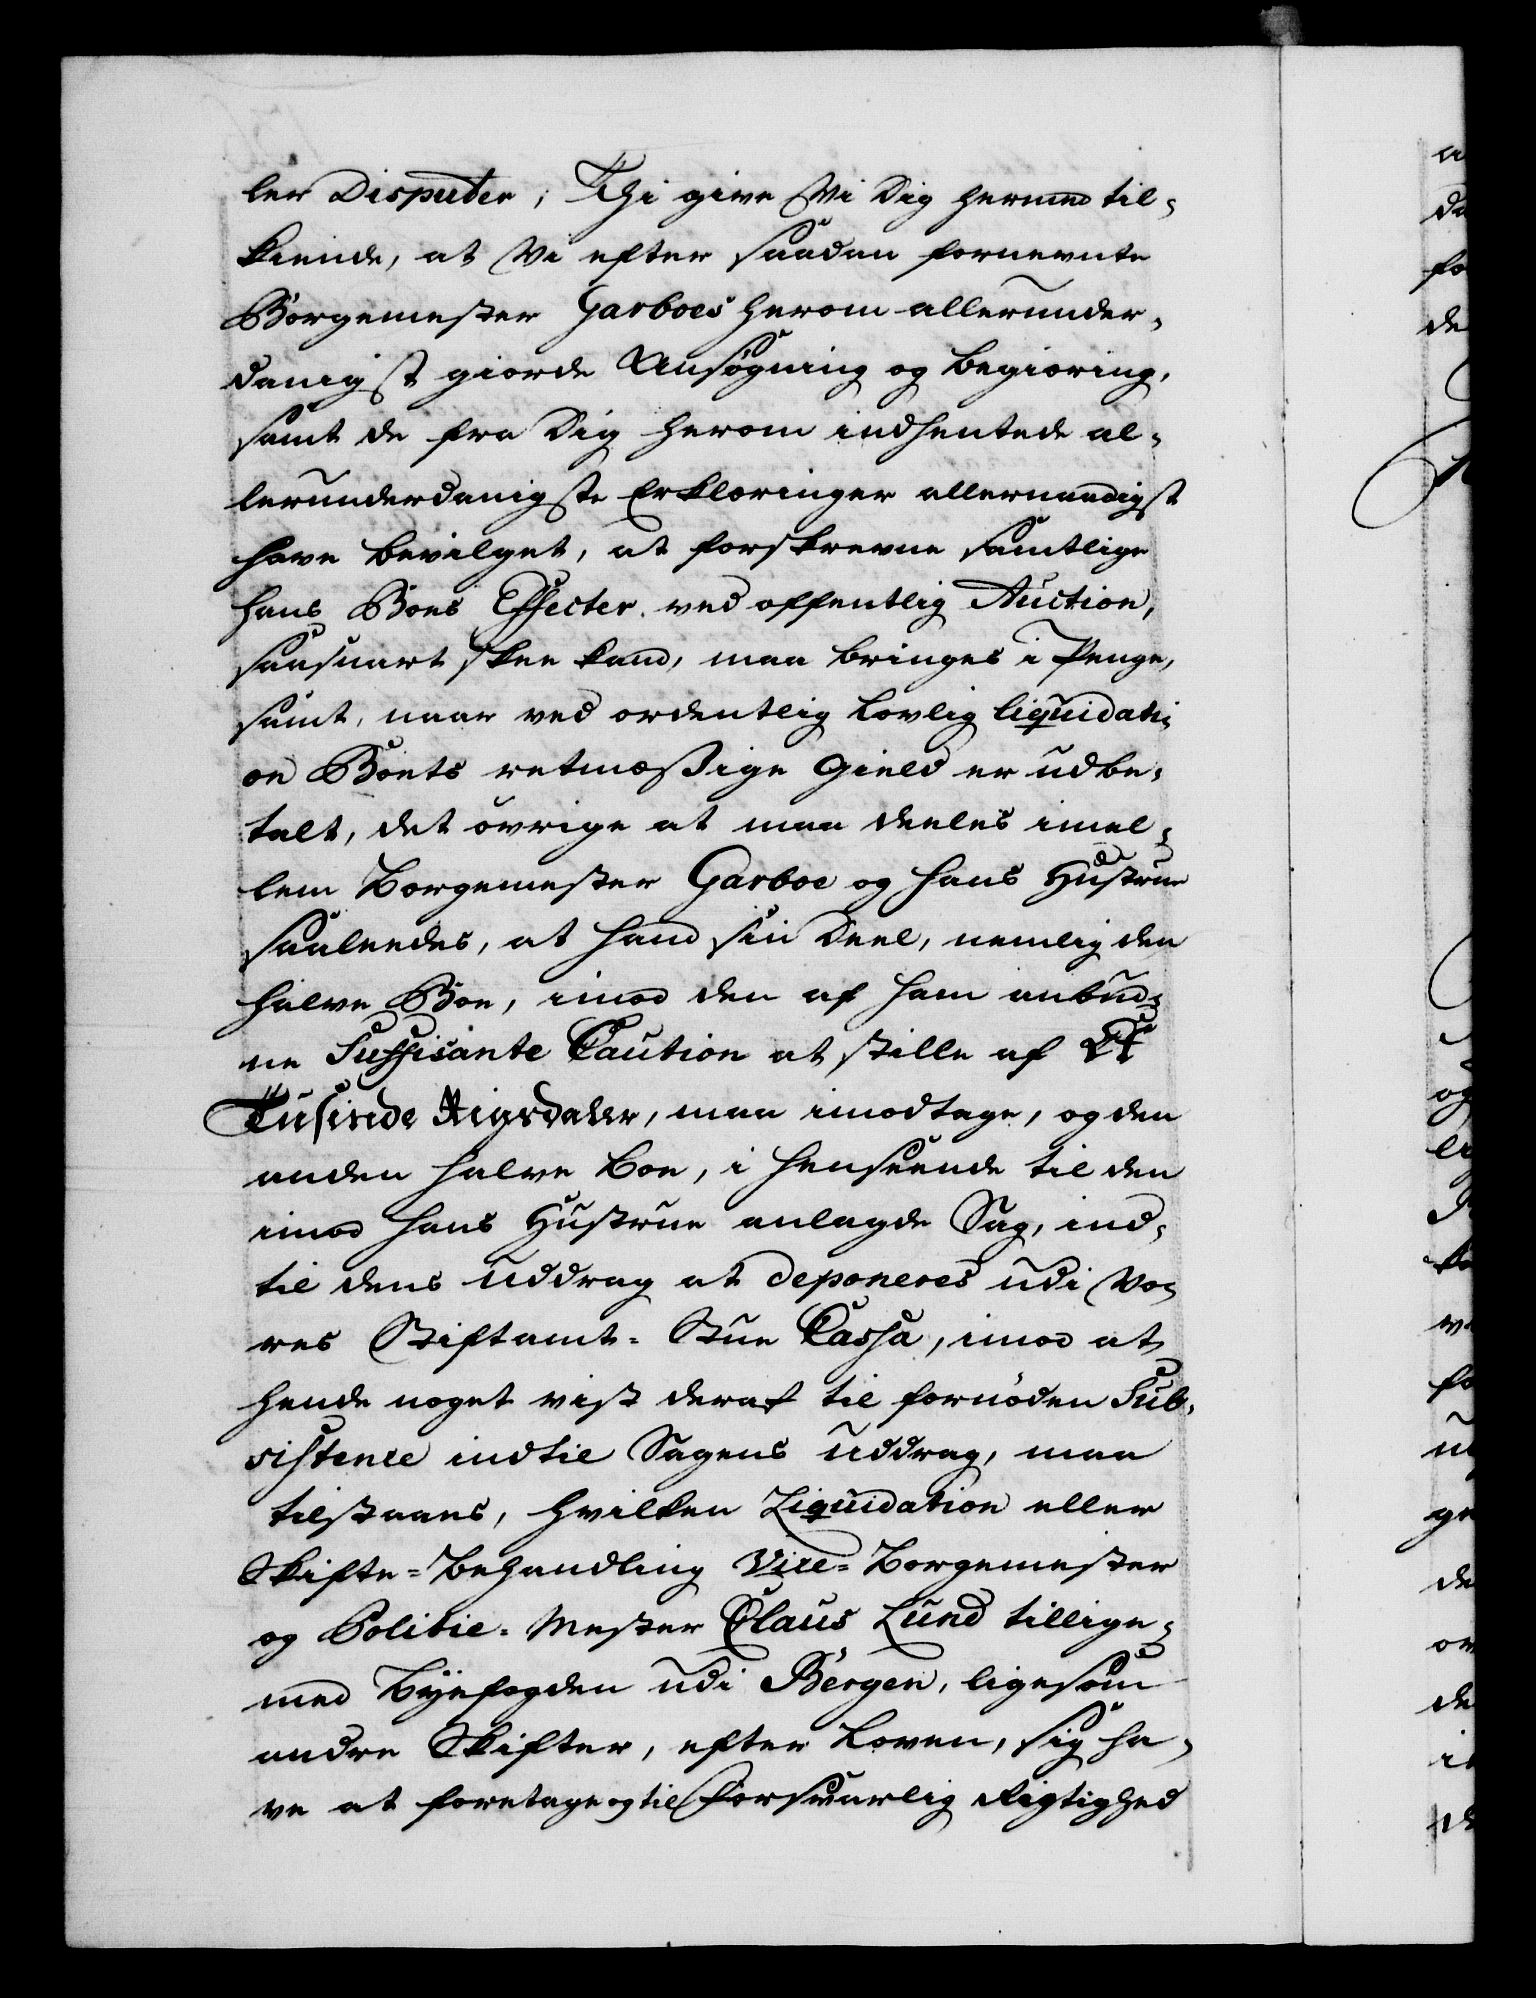 ler Disputer; Thi give Vi Dig hermed til-
kiende, at Vi efter saadan fornevnte
Borgemester Garboes herom allerunder-
danigst giorde Ansøgning og begiering,
samt de fra Dig herom indhentede al-
lerunderdanigste Erklæringer allernaadigst
have bevilget, at forskrevne samtlige
hans Boes Effecter ved offentlig Auction,
saasnart skee kand, maa bringes i Penge,
samt, naar ved ordentlig lovlig liquidati-
on Boets retmæssige Gield er udbe-
talt, det øvrige at maa deeles imel-
lem Borgemester Garboe og hans Hustrue
saaleedes, at hand sin Deel, nemlig den
halve Boe, imod den af ham anbud-
ne Suffisante Caution at stille af
Tusinde Rigsdaler, maa imodtage, og den
anden halve Boe, i henseende til den
imod hans Hustrue anlagde Sag, ind-
til dens Uddrag at deponeres udi Vo-
res Stiftamt-Stue Cassa, imod at
hende noget vist deraf til fornøden Sub-
sistence indtil Sagens Uddrag, maa
tilstaaes, hvilken Liquidation eller
Skifte-behandling Vice-Borgemester
og Politie-Mester Claus Lund tillige-
med Byefogden udi Bergen, ligesom
andre Skifter, efter Loven, sig ha-
ve at foretage og til forsvarlig Rigtighed